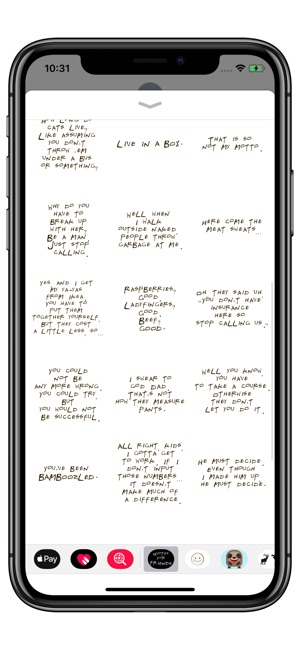 10:31
HOW LONG DO
CATS LIVE,
LIKE ASSUMING
YOU DON'T
THROW 'EM
UNDER A BUS
OR SOMETHING,
LIVE IN A BOX.
THAT IS SO
NOT MY MOTTO.
WHY DO YOU
HAVE TO
BREAK UP
WITH HER,
BE A MAN.
JUST STOP
CALLING.
WELL WHEN
I WALK
OUTSIDE NAKED
PEOPLE THROW
GARBAGE AT ME.
HERE COME THE
MEAT SWEATS...
YES AND I GET
MY YA-YAS
FROM IKEA
YOU HAVE TO
PUT THEM
TOGETHER YOURSELF.
BUT THEY COST
A LITTLE LESS SO...
RASPBERRIES,
GOOD.
LADYFINGERS,
GOOD.
BEEF,
GOOD.
OH THEY SAID UH
..YOU DON'T HAVE
INSURANCE
HERE SO
STOP CALLING US..
YOU COULD
NOT BE
ANY MORE WRONG.
YOU COULD TRY.
BUT
YOU WOULD NOT
BE SUCCESSFUL.
I SWEAR TO
GOD DAD
THAT'S NOT
HOW THEY MEASURE
PANTS.
WELL YOU KNOW
YOU HAVE
TO TAKE A COURSE
OTHERWISE
THEY DON'T
LET YOU DO IT.
YOU'VE BEEN
BAMBOOZLED.
ALL RIGHT KIDS
I GOTTA GET
TO WORK, IF I
DON'T INPUT
THOSE NUMBERS...
IT DOESN'T
MAKE MUCH OF
A DIFFERENCE.
HE MUST DECIDE.
EVEN THOUGH
I MADE HIM UP
HE MUST DECIDE.
Pay
QUOTES
FOR
FRIENDS